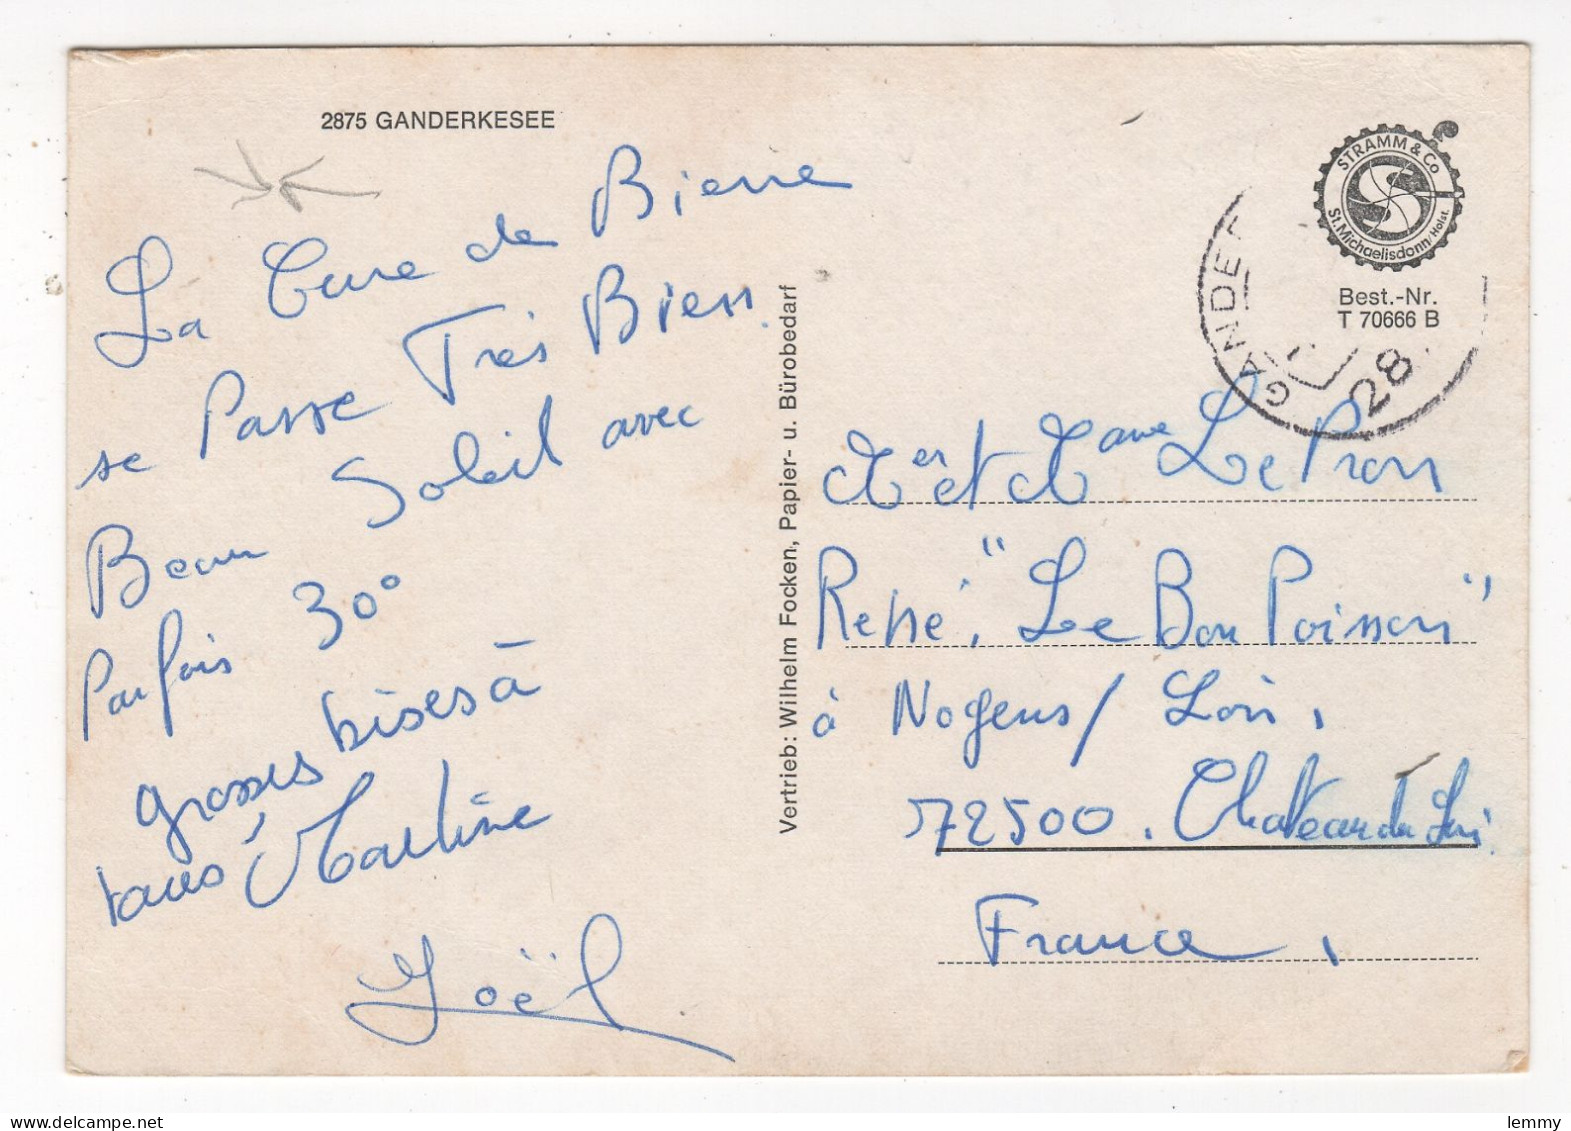 2875 GANDERKESEE
La Cure de Bierre
se Passe Très Bien.
Beau Soleil avec
Parfois 30°
grosses bises à
tous, Martine
Joël
Vertrieb: Wilhelm Focken, Papier- u. Bürobedarf
STRAMM & Co
St.Michaelisdonn/Holst.
Best.-Nr.
T 70666 B
GANDER
28
et Le Pron
René, "Le Bon Poisson"
à Nogens/ Loir,
72500. Chateau du Loir
France,
lemmy